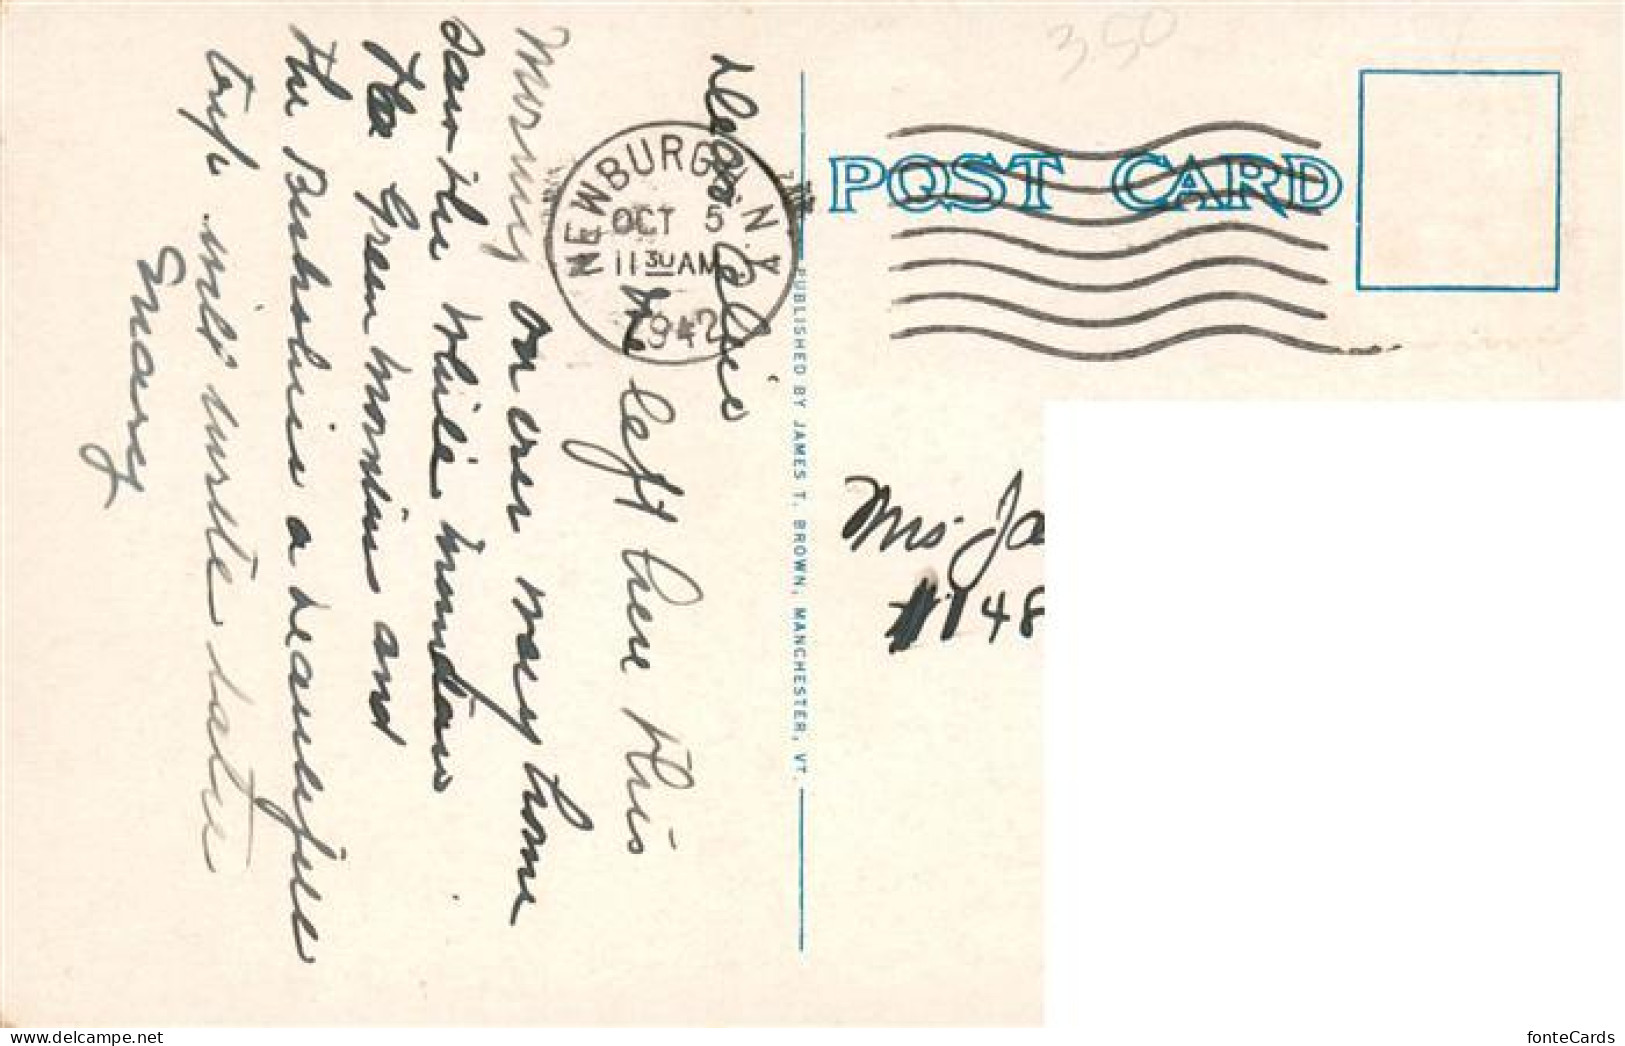 Dear Elsie
left here this
Morning on our way home
Saw the White Mountains
the Green Mountins and
the Burkshires a beautifull
trip will write later
Mary
NEWBURGH, N.Y.
OCT 5
11 30 AM
1942
3.50
POST CARD
PUBLISHED BY JAMES T. BROWN, MANCHESTER, VT.
Mrs Ja
48
fonteCards